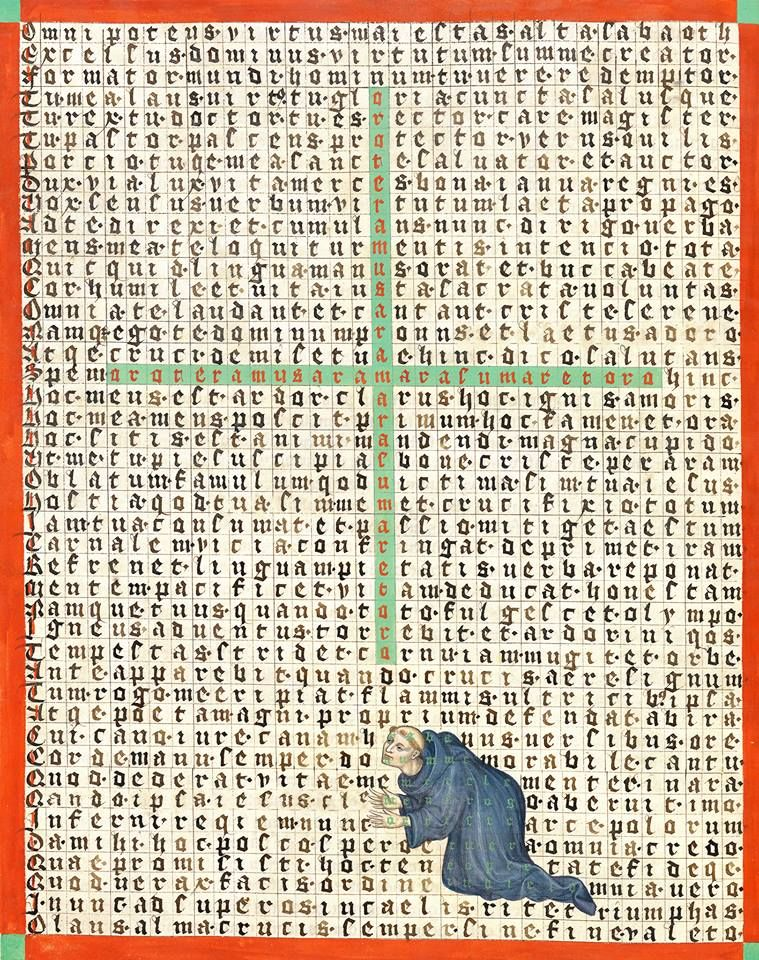 Omnipotens·virtus·maiestas·alta·sabaoth
Excelsus·dominus·virtutum·summe·creator
Formator·mundi·hominum·tu·uere·redemptor·
Tu·mea·laus·uirt9·tu·gloria·cuncta·salusque·
Tu·rex·tu·doctor·tu·es·rector·care·magister
Tu·pastor·pascens·protector·verus·ouilis·
porcio·tuqe·mea·sancte·saluator·et·auctor·
Dux·via·lux·vita·merces·bona·ianua·regni·es·
Vox·sensus·uerbum·virtutum·laeta·propago·
Ad·te·direxi·et·cumulans·nunc·dirigo·uerba·
Mens·mea·te·loquitur·mentis·intencio·tota·
Quicquid·lingua·manus·orat·et·bucca·beate·
Cor·humile·et·uita·iusta·sacrata·uoluntas·
Omnia·te·laudant·et·cantant·criste·serene·
Namqe·ego·te·dominum·pronus·et·laetus·adoro·
Atqe·cruci·demise·tuae·hinc·dico·salutans·
Spem oro te ramus aram ara sumar et oro hinc·
hoc·meus·est·ardor·clarus·hoc·ignis·amoris·
hoc·mea·mens·poscit·primum·hoc·tamen·et·ora·
hoc·sitis·est·animi·mandendi·magna·cupido·
Ut·me·tu·pie·suscipias·bone·criste·per·aram
Oblatum·famulum·qod·uictima·sim·tua·iesus·
hostia·qod·tua·sim·me·et·crucifixio·totum
Iam·tua·consumat·et·passio·mitiget·aestum
Carnalem·vicia·confringat·deprimet·iram
Refrenet·linguam·pietatis·uerba·reponat·
Mentem·pacificet·vitam·deducat·honestam
Namque·tuus·quando·toto·fulgescet·olympo·
Igneus·aduentus·torrebit·et·ardor·iniqos·
Tempestas·stridet·cornu·iam·mugit·et·orbe·
Ante·apparebit·quando·crucis·aere·signum
Tum·rogo·me·eripiat·flammis·ultricib9·ipsa·
Atqe·poetam·agni·proprium·defendat·ab·ira·
Cui·cano·iure·canam·hraban uersibus·ore·
Corde·manu·semper·do memorabile·cantu·
Quod·dederat·vitae·me menter·in·ara·
Qando·ipsa·iesus·cle o·ab·eruit·imo·
Inferni·reqiem·nunc arce·polorum
Da·mihi·hoc·posco·sper a·omnia·credo·
Quae·promisisti·hoc·ten tate·fideqe·
Quod·uerax·facis·ordine omnia·uero·
I·nunc·ad·superos·in·caelis·rite·triumphas·
O·laus·alma·crucis·semper·sine·fine·valeto·